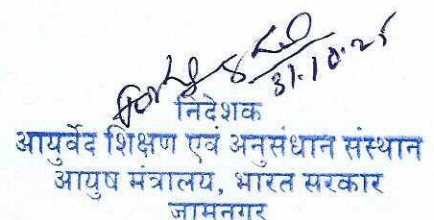 31.10.25
निदेशक
आयुर्वेद शिक्षण एवं अनुसंधान संस्थान
आयुष मंत्रालय, भारत सरकार
जामनगर